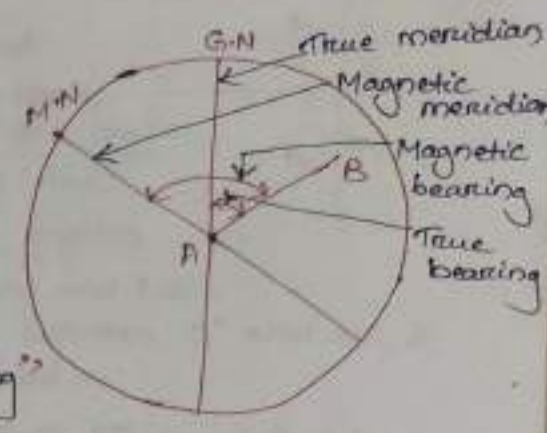 G.N
True meridian
Magnetic
meridian
M.N
Magnetic
bearing
B
A
True
bearing
g"